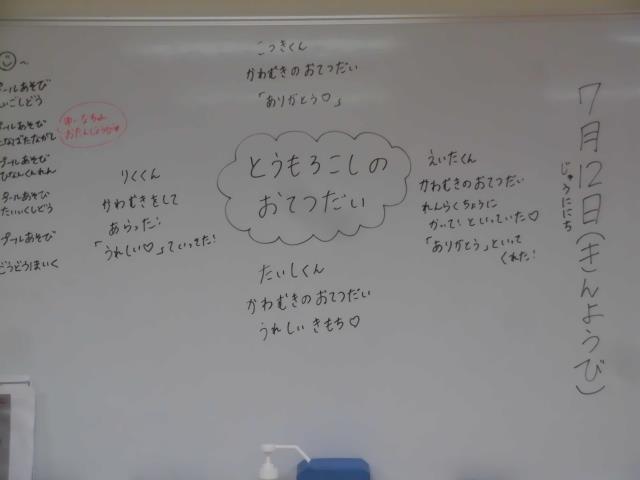 7月12日(きんようび)
じゅうににち
こうきくん
かわむきのおてつだい
「ありがとう♡」
とうもろこしの
おてつだい
えいたくん
かわむきのおてつだい
れんらくちょうに
かいて!といっていた♡
「ありがとう」といって
くれた!
りくくん
かわむきをして
あらった!
「うれしい♡」ていってた!
たいしくん
かわむきのおてつだい
うれしい きもち♡
プールあそび
プールあそび
たなばたながし
おたんじょうび
プールあそび
ひなんくんれん
プールあそび
たいいくしどう
プールあそび
ごうどうほいく